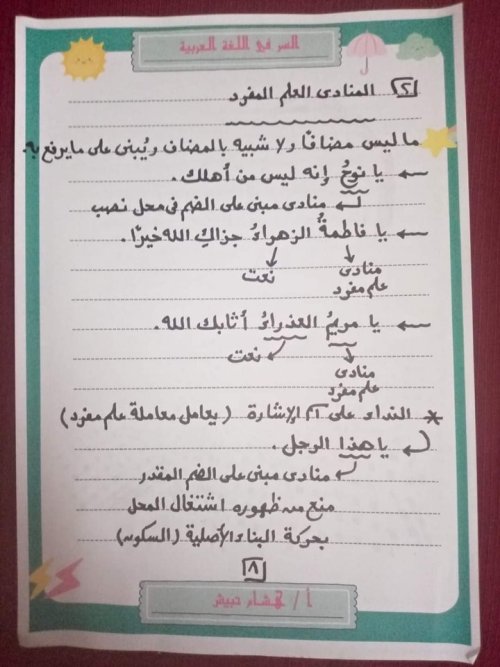 السر في اللغة العربية
٢ المنادى العلم المفرد
ما ليس مضافًا ولا شبيه بالمضاف ويُبنى على ما يرفع به.
← يا نوحُ إنه ليس من أهلك.
منادى مبنى على الضم فى محل نصب
← يا فاطمةُ الزهراءُ جزاكِ الله خيرًا.
منادى علم مفرد نعت
← يا مريمُ العذراءُ أثابك الله.
منادى علم مفرد نعت
* النداء على اسم الإشارة (يعامل معاملة علم مفرد)
يا هذا الرجل.
منادى مبنى على الضم المقدر
منع من ظهوره اشتغال المحل
بحركة البناء الأصلية (السكون)
٨
أ / هشام حبيش